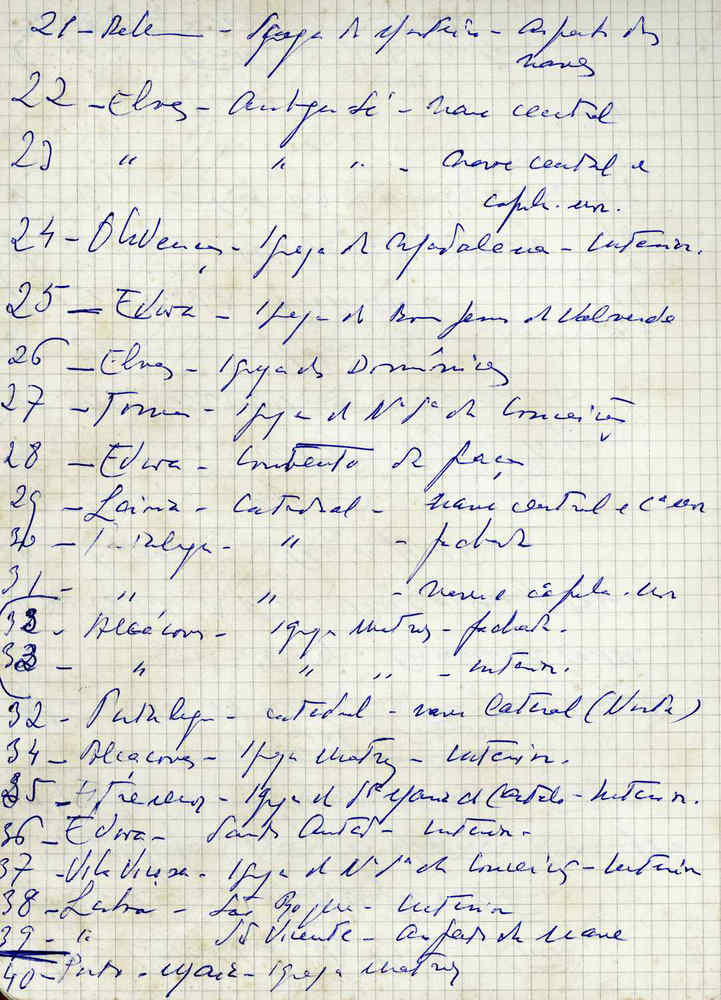 21 - Belem - Igreja do Mosteiro - Aspecto das
naves
22 - Elvas - Antiga Sé - nave central
23 " " " - nave central e
capela-mor.
24 - Olivença - Igreja da Madalena - Interior.
25 - Evora - Igreja do Bom Jesus de Valverde
26 - Elvas - Igreja das Domínicas
27 - Tomar - Igreja de Nª Sª da Conceição
28 - Evora - Convento da Graça
29 - Leiria - Catedral - nave central e Cª mor
30 - Portalegre - " - fachada
31 - " " - nave e capela-mor
33 - Alcáçovas - Igreja Matriz - fachada.
33 - " " " - interior.
32 - Portalegre - catedral - nave lateral (Norte)
34 - Alcáçovas - Igreja Matriz - Interior.
35 - Estremoz - Igreja de Stª Maria do Castelo - Interior.
36 - Evora - Santo Antão - interior -
37 - Vila Viçosa - Igreja de Nª Sª da Conceição - Interior
38 - Lisboa - São Roque - Interior
39 - " S Vicente - Aspecto da nave
40 - Porto - Igreja Matriz